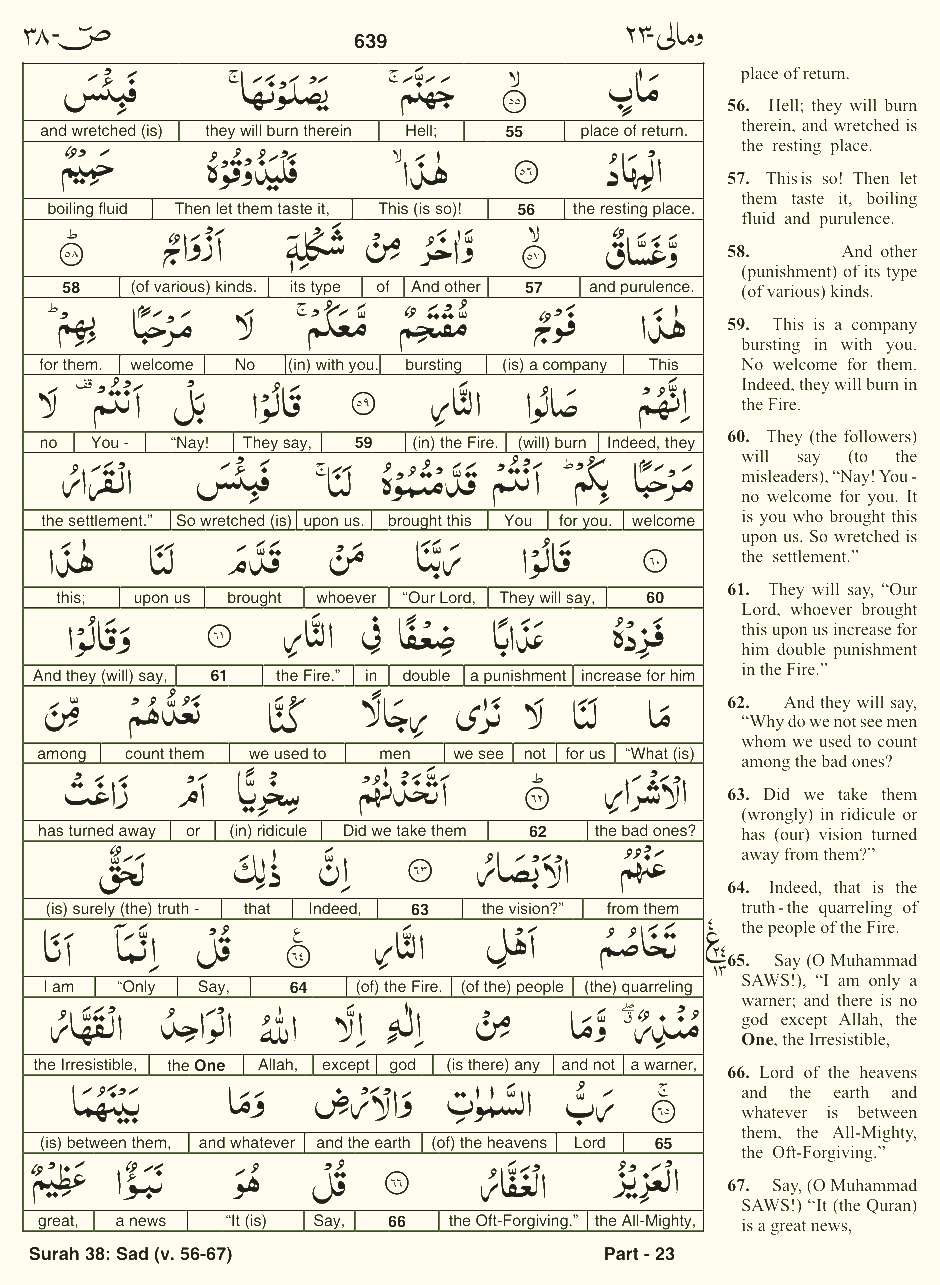 صٓ-٣٨
639
ومالی-٢٣
مَاٰبٍ ۙ٥٥ جَهَنَّمَ ۚ يَصْلَوْنَهَا ۚ فَبِئْسَ
and wretched (is) they will burn therein Hell; 55 place of return.
الْمِهَادُ ٥٦ هٰذَا ۙ فَلْيَذُوْقُوْهُ حَمِيْمٌ
boiling fluid Then let them taste it, This (is so)! 56 the resting place.
وَّغَسَّاقٌ ۙ٥٧ وَّاٰخَرُ مِنْ شَكْلِهٖٓ اَزْوَاجٌ ؕ٥٨
58 (of various) kinds. its type of And other 57 and purulence.
هٰذَا فَوْجٌ مُّقْتَحِمٌ مَّعَكُمْ ۚ لَا مَرْحَبًۢا بِهِمْ ؕ
for them. welcome No (in) with you. bursting (is) a company This
اِنَّهُمْ صَالُوا النَّارِ ٥٩ قَالُوْا بَلْ اَنْتُمْ ۫ لَا
no You - “Nay! They say, 59 (in) the Fire. (will) burn Indeed, they
مَرْحَبًۢا بِكُمْ ؕ اَنْتُمْ قَدَّمْتُمُوْهُ لَنَا ۚ فَبِئْسَ الْقَرَارُ
the settlement.” So wretched (is) upon us. brought this You for you. welcome
٦٠ قَالُوْا رَبَّنَا مَنْ قَدَّمَ لَنَا هٰذَا
this; upon us brought whoever “Our Lord, They will say, 60
فَزِدْهُ عَذَابًا ضِعْفًا فِي النَّارِ ٦١ وَقَالُوْا
And they (will) say, 61 the Fire.” in double a punishment increase for him
مَا لَنَا لَا نَرٰى رِجَالًا كُنَّا نَعُدُّهُمْ مِّنَ
among count them we used to men we see not for us “What (is)
الْاَشْرَارِ ؕ٦٢ اَتَّخَذْنٰهُمْ سِخْرِيًّا اَمْ زَاغَتْ
has turned away or (in) ridicule Did we take them 62 the bad ones?
عَنْهُمُ الْاَبْصَارُ ٦٣ اِنَّ ذٰلِكَ لَحَقٌّ
(is) surely (the) truth - that Indeed, 63 the vision?” from them
تَخَاصُمُ اَهْلِ النَّارِ ٦٤ ع قُلْ اِنَّمَآ اَنَا
I am “Only Say, 64 (of) the Fire. (of the) people (the) quarreling
مُنْذِرٌ ۖ وَّمَا مِنْ اِلٰهٍ اِلَّا اللّٰهُ الْوَاحِدُ الْقَهَّارُ
the Irresistible, the One Allah, except god (is there) any and not a warner,
ۚ٦٥ رَبُّ السَّمٰوٰتِ وَالْاَرْضِ وَمَا بَيْنَهُمَا
(is) between them, and whatever and the earth (of) the heavens Lord 65
الْعَزِيْزُ الْغَفَّارُ ٦٦ قُلْ هُوَ نَبَؤٌا عَظِيْمٌ
great, a news “It (is) Say, 66 the Oft-Forgiving.” the All-Mighty,
٤
ع
٢٤
١٣
place of return.
56. Hell; they will burn
therein, and wretched is
the resting place.
57. This is so! Then let
them taste it, boiling
fluid and purulence.
58. And other
(punishment) of its type
(of various) kinds.
59. This is a company
bursting in with you.
No welcome for them.
Indeed, they will burn in
the Fire.
60. They (the followers)
will say (to the
misleaders), “Nay! You -
no welcome for you. It
is you who brought this
upon us. So wretched is
the settlement.”
61. They will say, “Our
Lord, whoever brought
this upon us increase for
him double punishment
in the Fire.”
62. And they will say,
“Why do we not see men
whom we used to count
among the bad ones?
63. Did we take them
(wrongly) in ridicule or
has (our) vision turned
away from them?”
64. Indeed, that is the
truth - the quarreling of
the people of the Fire.
65. Say (O Muhammad
SAWS!), “I am only a
warner; and there is no
god except Allah, the
One, the Irresistible,
66. Lord of the heavens
and the earth and
whatever is between
them, the All-Mighty,
the Oft-Forgiving.”
67. Say, (O Muhammad
SAWS!) “It (the Quran)
is a great news,
Surah 38: Sad (v. 56-67)
Part - 23